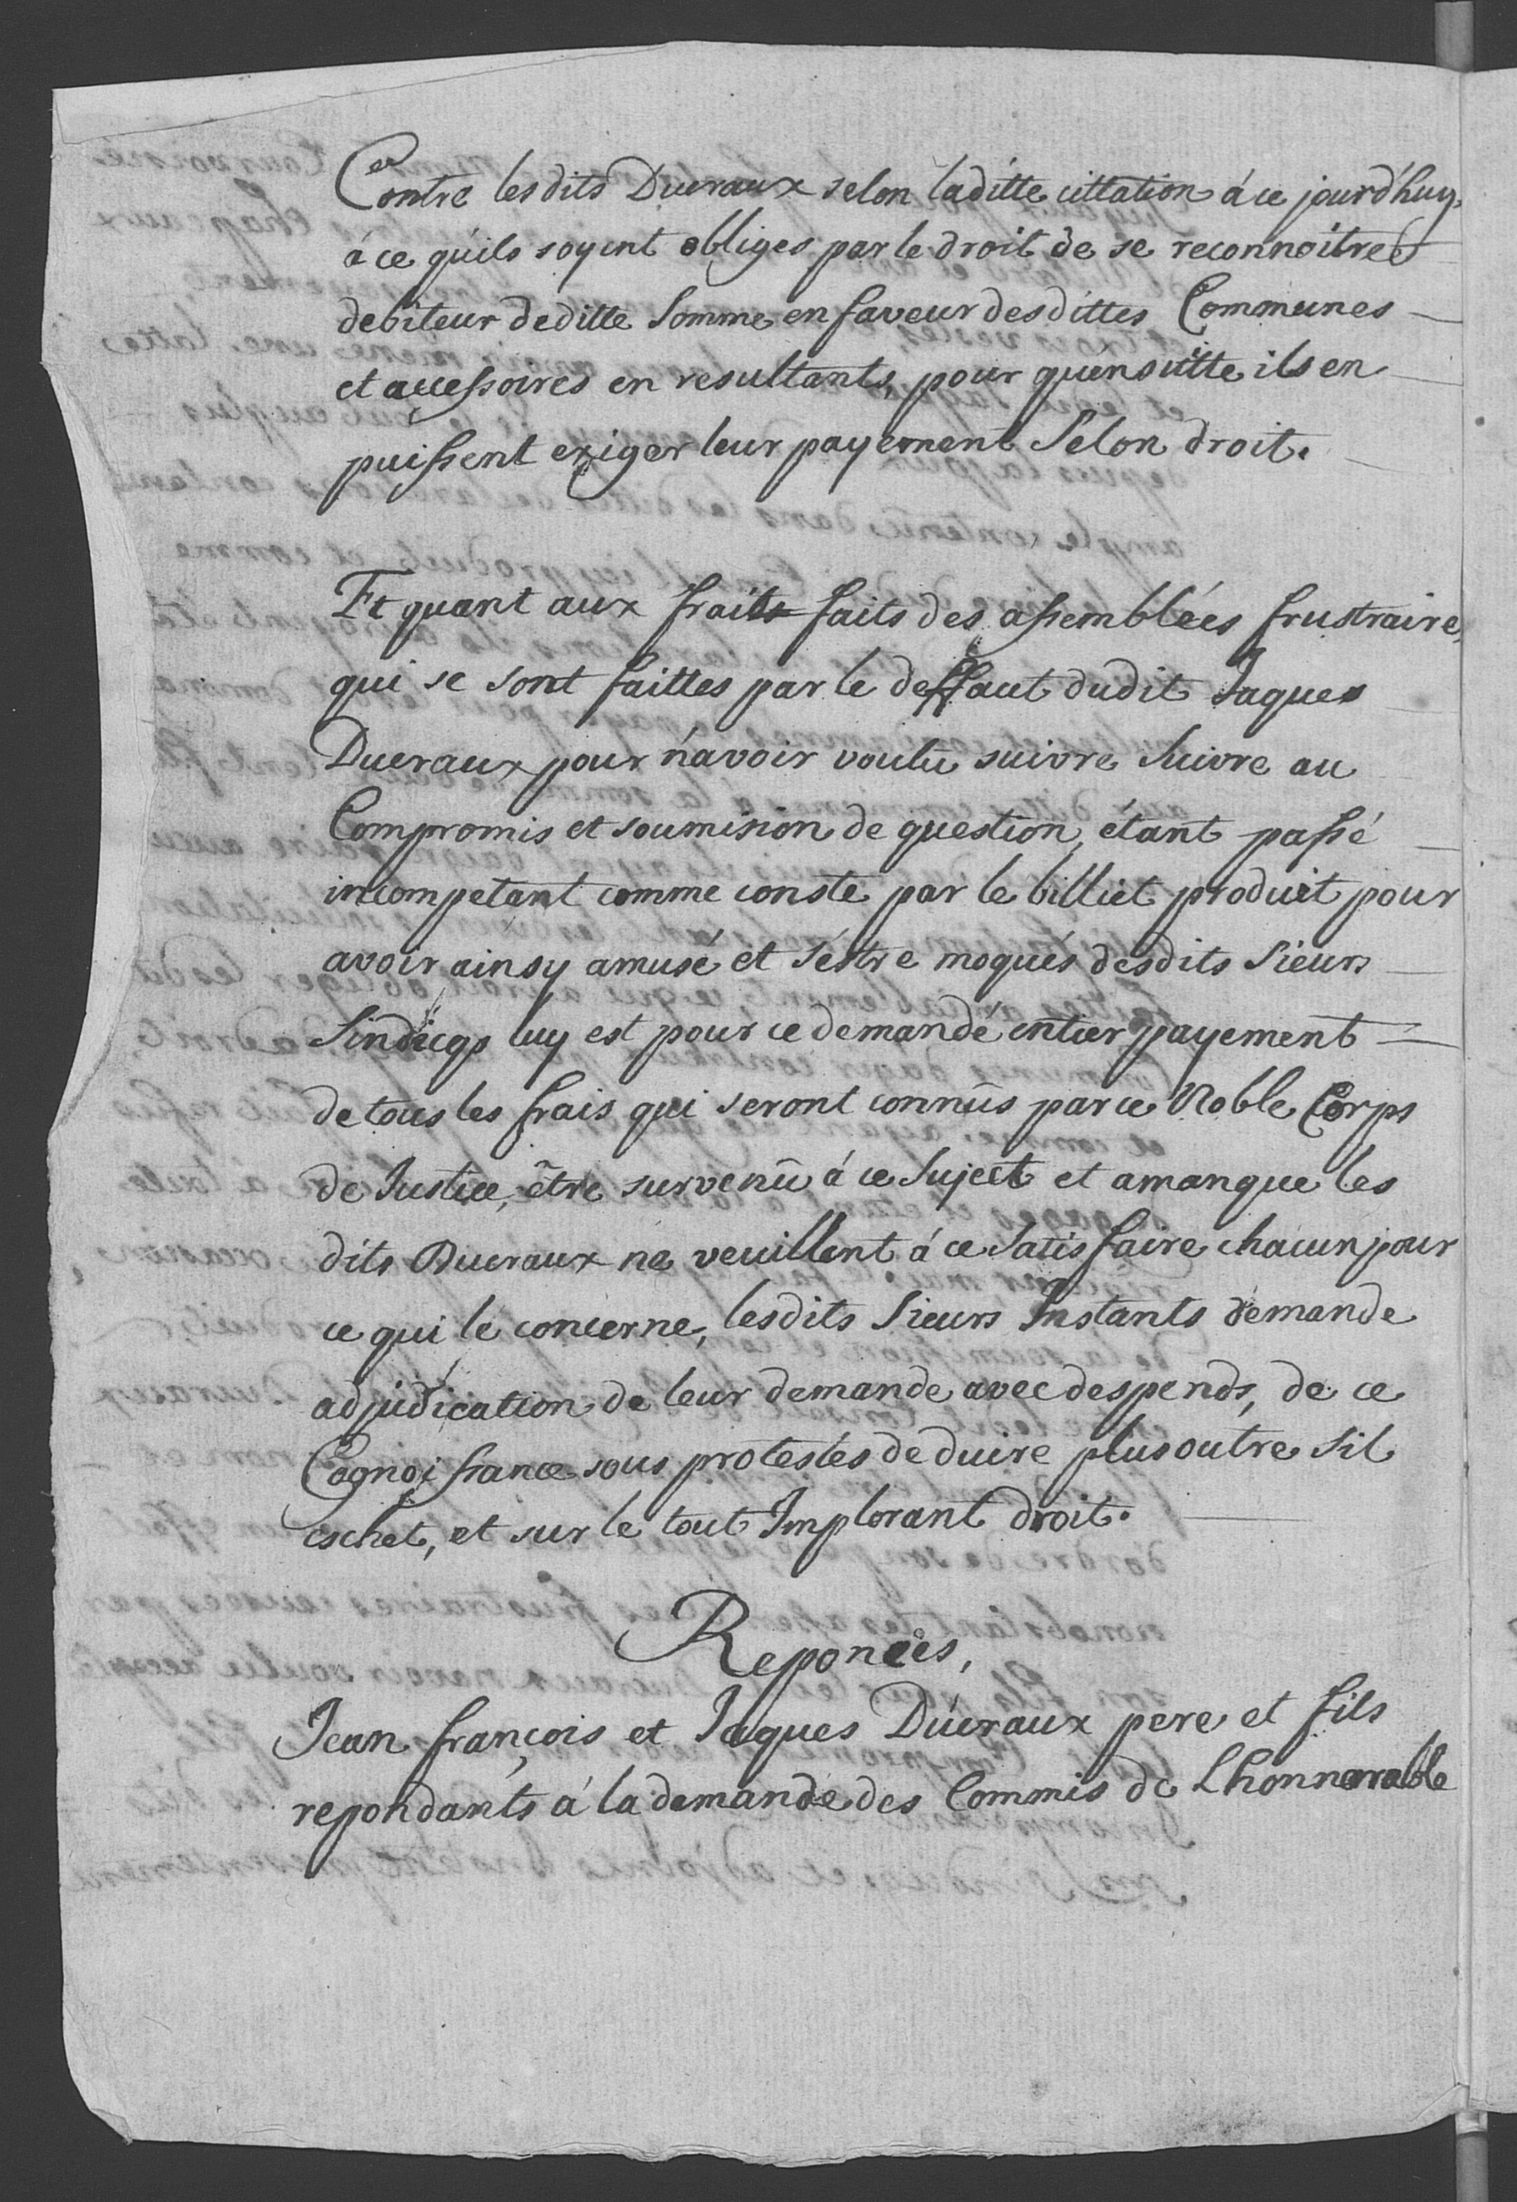 Contre lesdits Ducraux selon laditte cittation á ce jourd'huy,
á ce qu'ils soyent obliges par le droit de se reconnoitre
debiteur deditte Somme en faveur desdittes Communes
et accessoires en resultants, pour qu'ensuitte ils en
puissent exiger leur payement Selon droit.
Et quant aux frails faits des assemblées frustraire,
qui se sont faittes par le deffaut dudit Jaques
Ducraux pour n'avoir voulu suivre Suivre au
Compromis et soumision de question, étant passé
incompetant comme conste par le billiet produit pour
avoir ainsy amusé et s'estre moqués desdits Sieurs
Sindicqs luy est pour ce demandé entier payement
de tous les frais qui seront connûs par ce Noble Corps
de Justice, être survenû á ce Sujeet et amanque les
dits Ducraux ne veuillent á ce Satisfaire chacun pour
ce qui le concerne, lesdits Sieurs Instants demande
adjudication de leur demande avec despends, de ce
Cognoissance sous protestés de duire plus outre Sil
eschet, et sur le tout Implorant droit.
Reponces,
Jean françois et Jaques Ducraux pere et fils
repondants á la demande des Commis de Lhonnorable